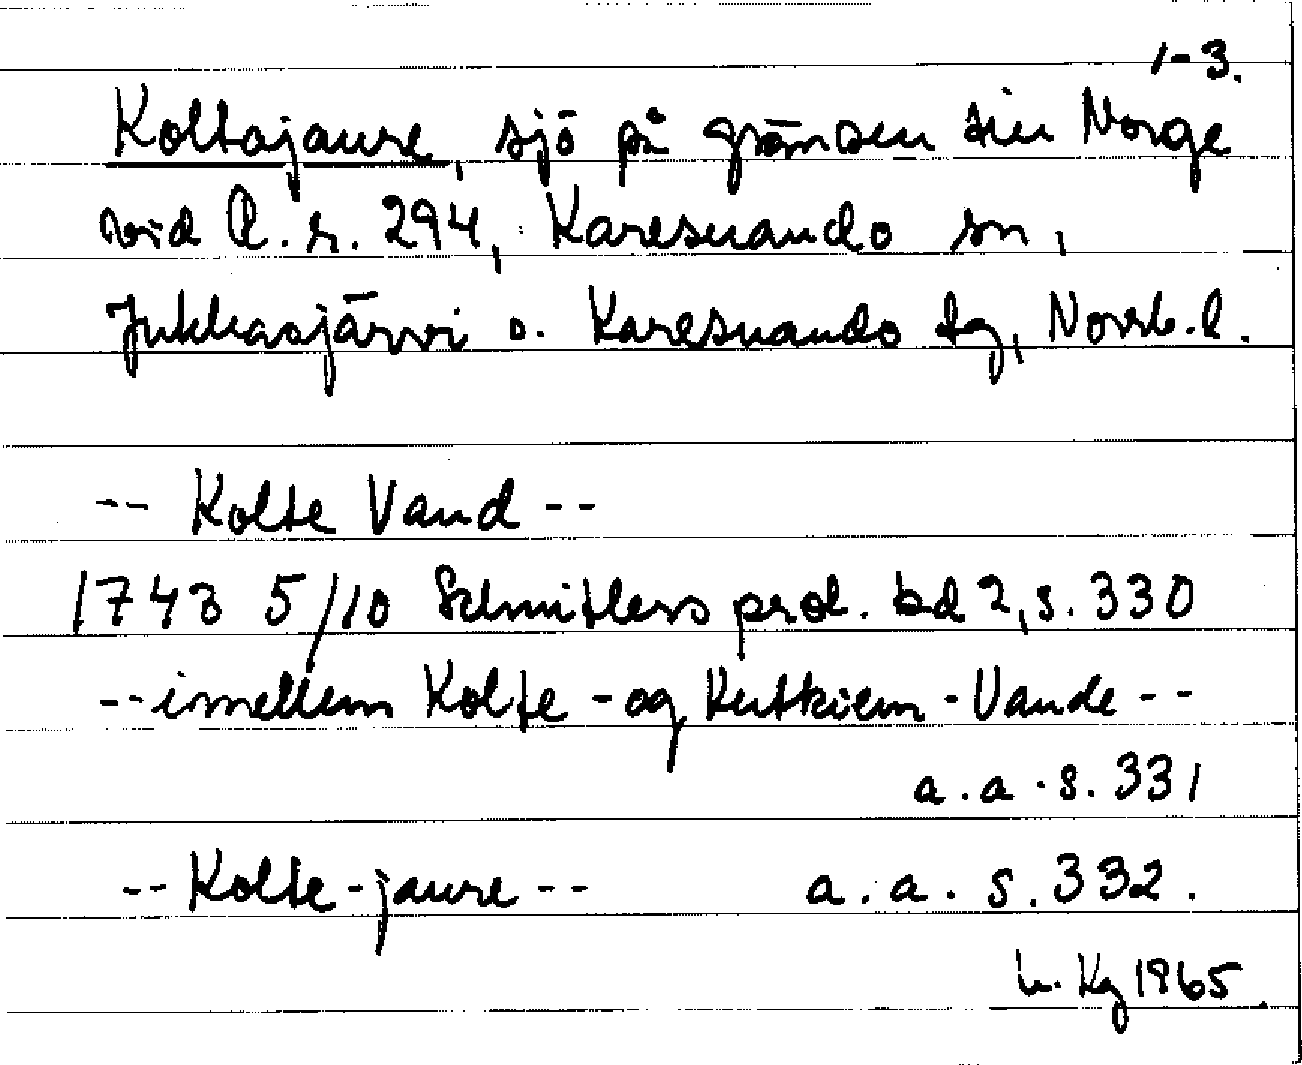 1-3.
Koltajaure, sjö på gränsen till Norge
vid R.r. 294, Karesuando sn,
Jukkasjärvi o. Karesuando tg, Norrb.l.
-- Kolte Vand --
1743 5/10 Schnitlers prot. bd 2, s. 330
-- imellem Kolte - og Kutkiem - Vande --
a.a. s. 331
-- Kolte-jaure -- a.a. s. 332.
Kg 1965